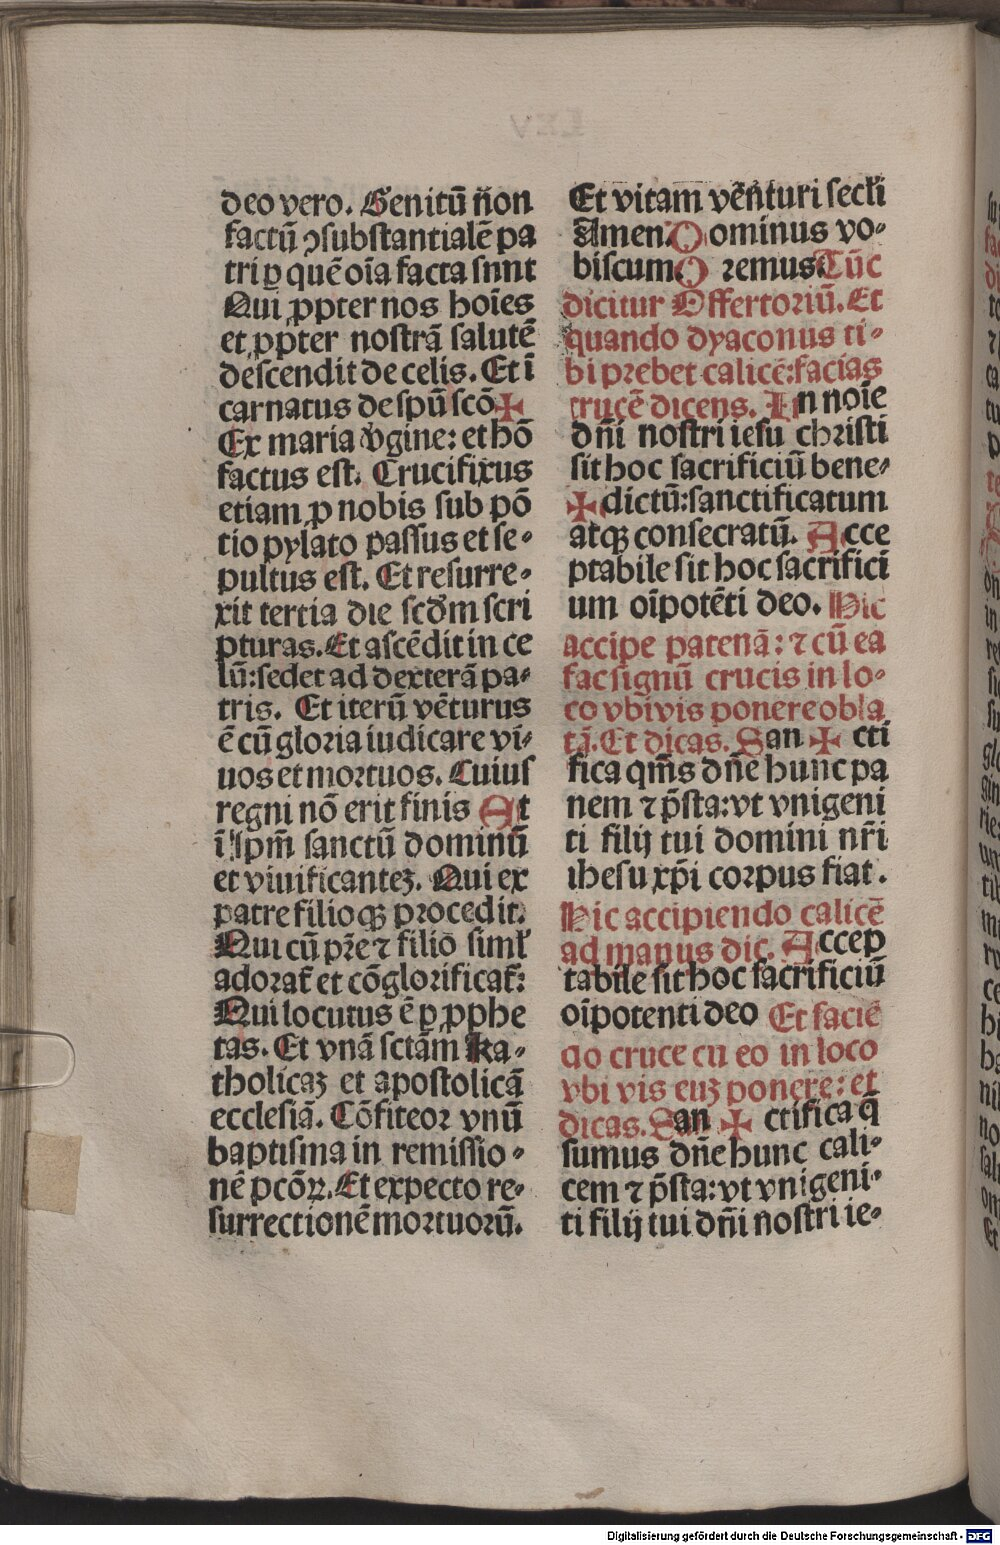 deo vero. Genitū non
factū ꝯsubstantialē pa
tri ꝑ quē oīa facta sunt
Qui ꝓpter nos hoīes
et ꝓpter nostrā salutē
descendit de celis. Et ī
carnatus de spū scō ✠
Ex maria v̓gine: et hō
factus est. Crucifixus
etiam ꝓ nobis sub pō
tio pylato passus et se⸗
pultus est. Et resurre⸗
xit tertia die scd̓m scri
pturas. Et ascēdit in ce
lū: sedet ad dexterā pa⸗
tris. Et iterū vēturus
ē cū gloria iudicare vi⸗
uos et mortuos. Cuius
regni nō erit finis Et
ī spm̄ sanctū dominū
et viuificanteꝫ. Qui ex
patre filioqꝫ procedit.
Qui cū pr̄e ⁊ filio siml̓
adorat̄ et cōglorificat̄:
Qui locutus ē ꝑ ꝓphe
tas. Et vnā sctām ka⸗
tholicaꝫ et apostolicā
ecclesiā. Cōfiteor vnū
baptisma in remissio⸗
nē pcōꝝ. Et expecto re⸗
surrectionē mortuorū.
Et vitam vēnturi secl̓i
Amen. Dominus vo⸗
biscum. Oremus. Tūc
dicitur Offertoriū. Et
quando dyaconus ti⸗
bi prebet calicē: facias
crucē dicens. In noīe
dn̄i nostri iesu christi
sit hoc sacrificiū bene⸗
✠ dictū: sanctificatum
atqꝫ consecratū. Acce
ptabile sit hoc sacrifici
um oīpotēti deo. Hic
accipe patenā: ⁊ cū ea
fac signū crucis in lo⸗
co vbivis ponere obla
tā. Et dicas. San ✠ cti
fica qm̄s dn̄e hunc pa
nem ⁊ p̄sta: vt vnigeni
ti filij tui domini nr̄i
ihesu xp̄i corpus fiat.
Hic accipiendo calicē
ad manus dic. Accep
tabile sit hoc sacrificiū
oīpotenti deo Et faciē
do cruce cū eo in loco
vbi vis euꝫ ponere: et
dicas. San ✠ ctifica q̄
sumus dn̄e hunc cali⸗
cem ⁊ p̄sta: vt vnigeni⸗
ti filij tui dn̄i nostri ie⸗
Digitalisierung gefördert durch die Deutsche Forschungsgemeinschaft - DFG